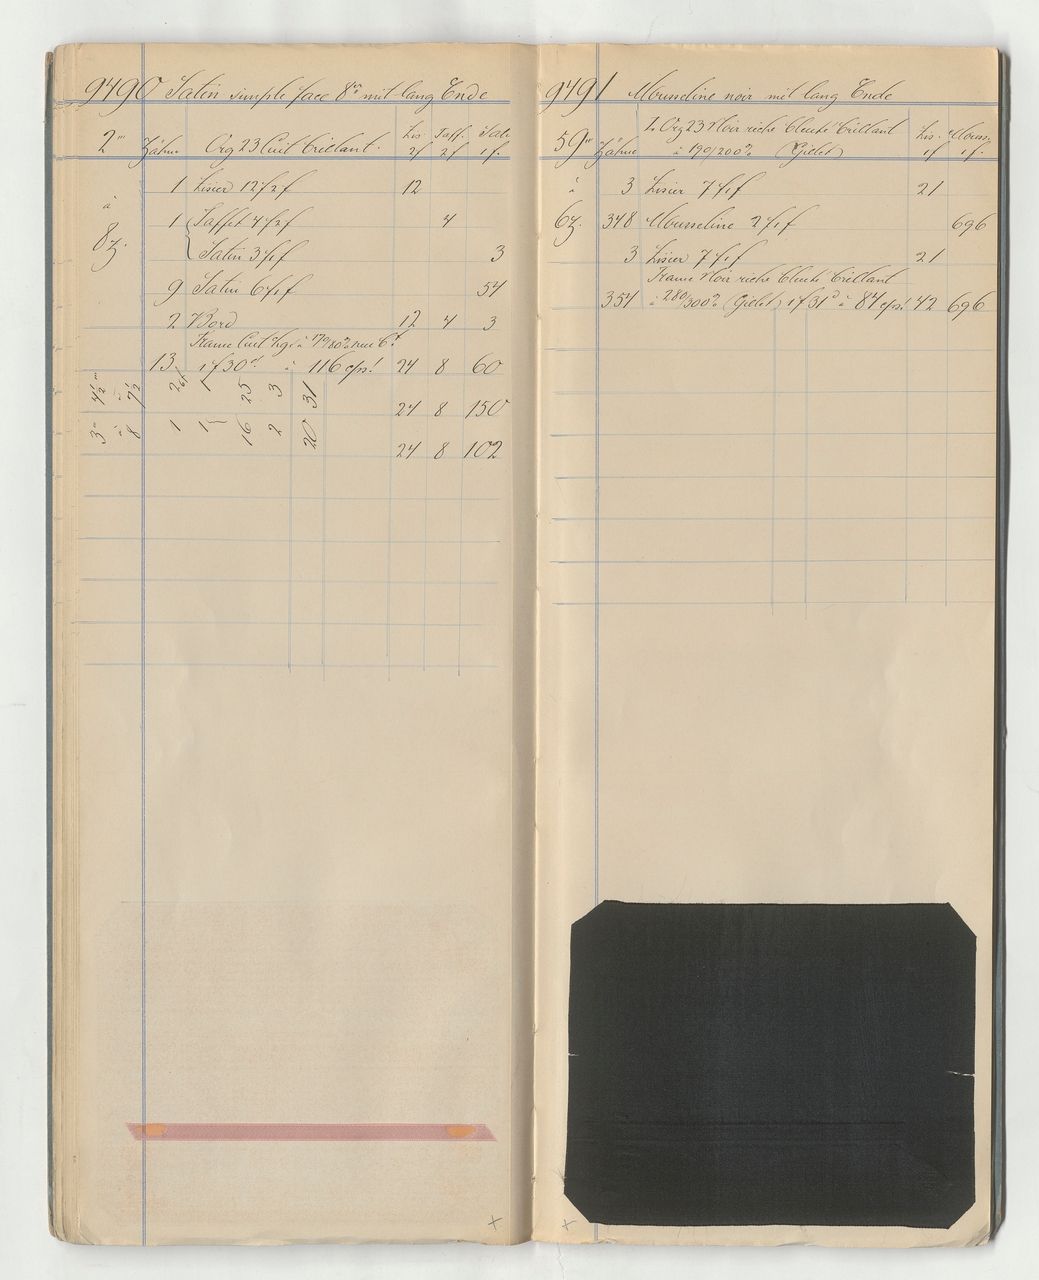 9490 Satin simple face 8er mit lang Ende
2''' Zähne Org 23 Cuit brillant. Lis. 2f Taff. 2f Sati 1f.
1 Lisier 12 f 2 f 12
à
1 Taffet 4 f 2 f 4
8 z.
Satin 3 f 1 f 3
9 Satin 6 f 1 f 54
2 Bord 12 4 3
Trame Cuit
13 1f 30d à 116 cps! 24 8 60
4½''' à 7½ 2 1 25 3 31 24 8 150
3''' à 8 1 1 16 2 20 24 8 102
x
9491 Mousseline noir mit lang Ende
59''' Zähne Org 23 Noir riche bleuté brillant Lis. 1f Mouss. 1f.
à 190/200% (Gilet)
à
3 Lisier 7 f 1 f 21
6 z. 348 Mousseline 2 f 1 f 696
3 Lisier 7 f 1 f 21
Trame Noir riche bleuté brillant
354 à 280/300% (Gilet) 1f 31d à 84 cps! 42 696
x